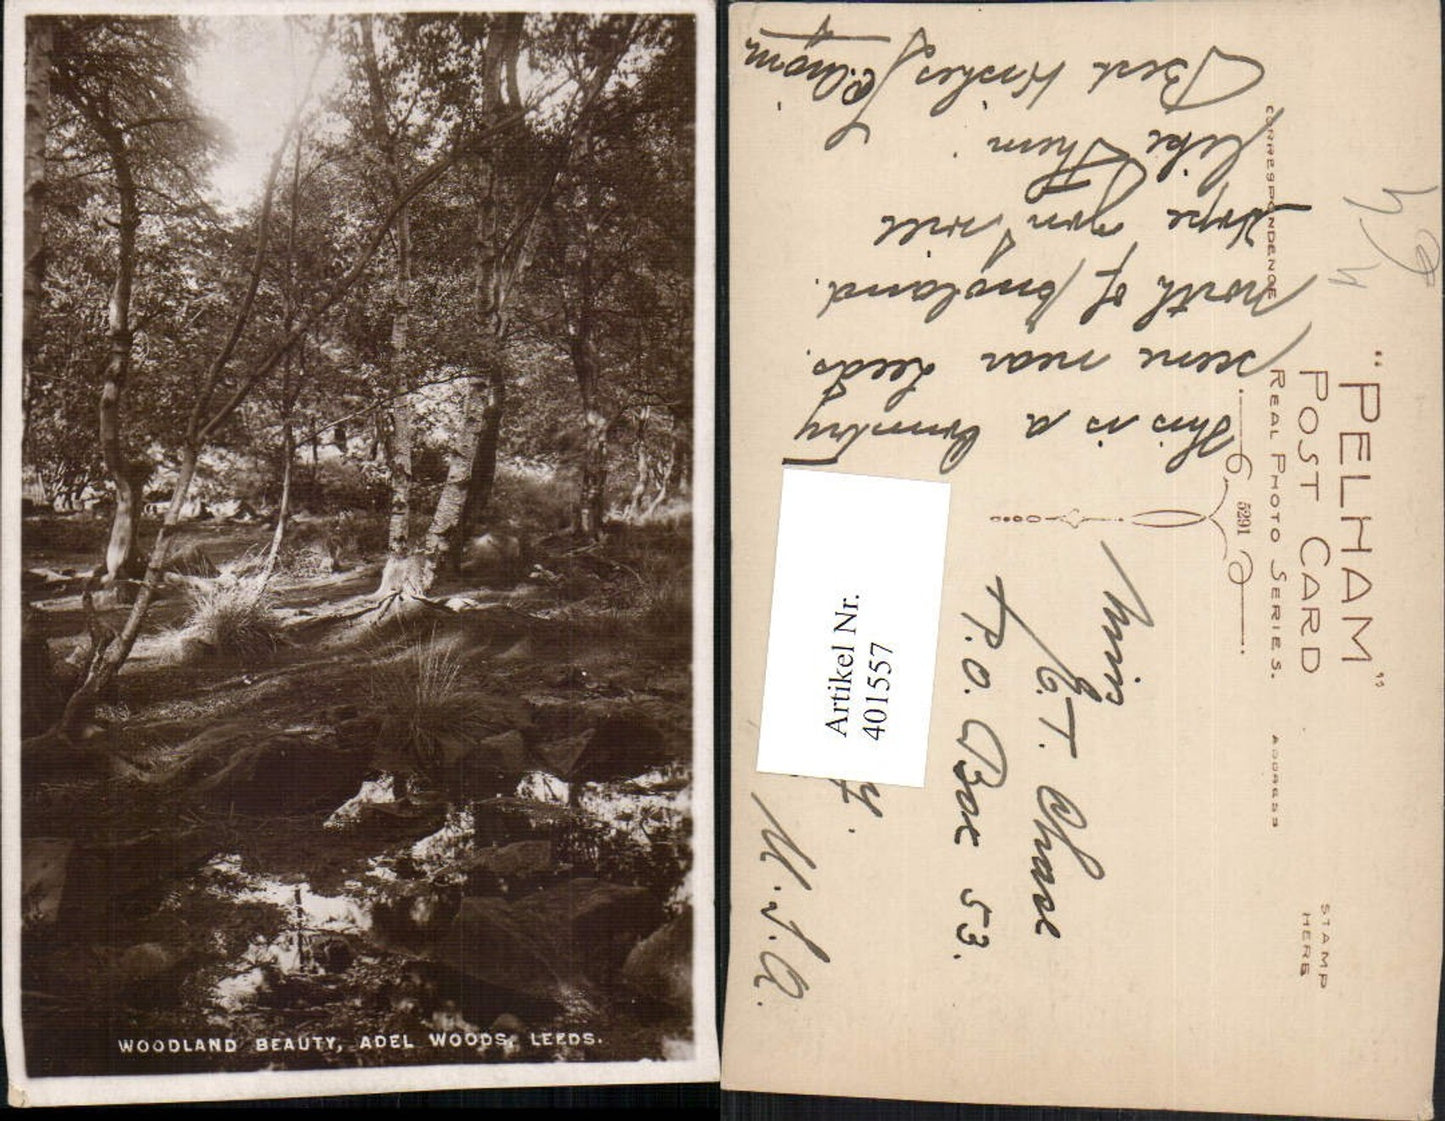 WOODLAND BEAUTY, ADEL WOODS, LEEDS.
"PELHAM"
POST CARD
REAL PHOTO SERIES.
CORRESPONDENCE
ADDRESS
STAMP
HERE
5291
This is a Country
scene near Leeds.
North of England.
Hope you will
like Them.
Best Wishes
Miss
E. T. Chase
P.O. Box 53.
U.S.A.
Artikel Nr.
401557